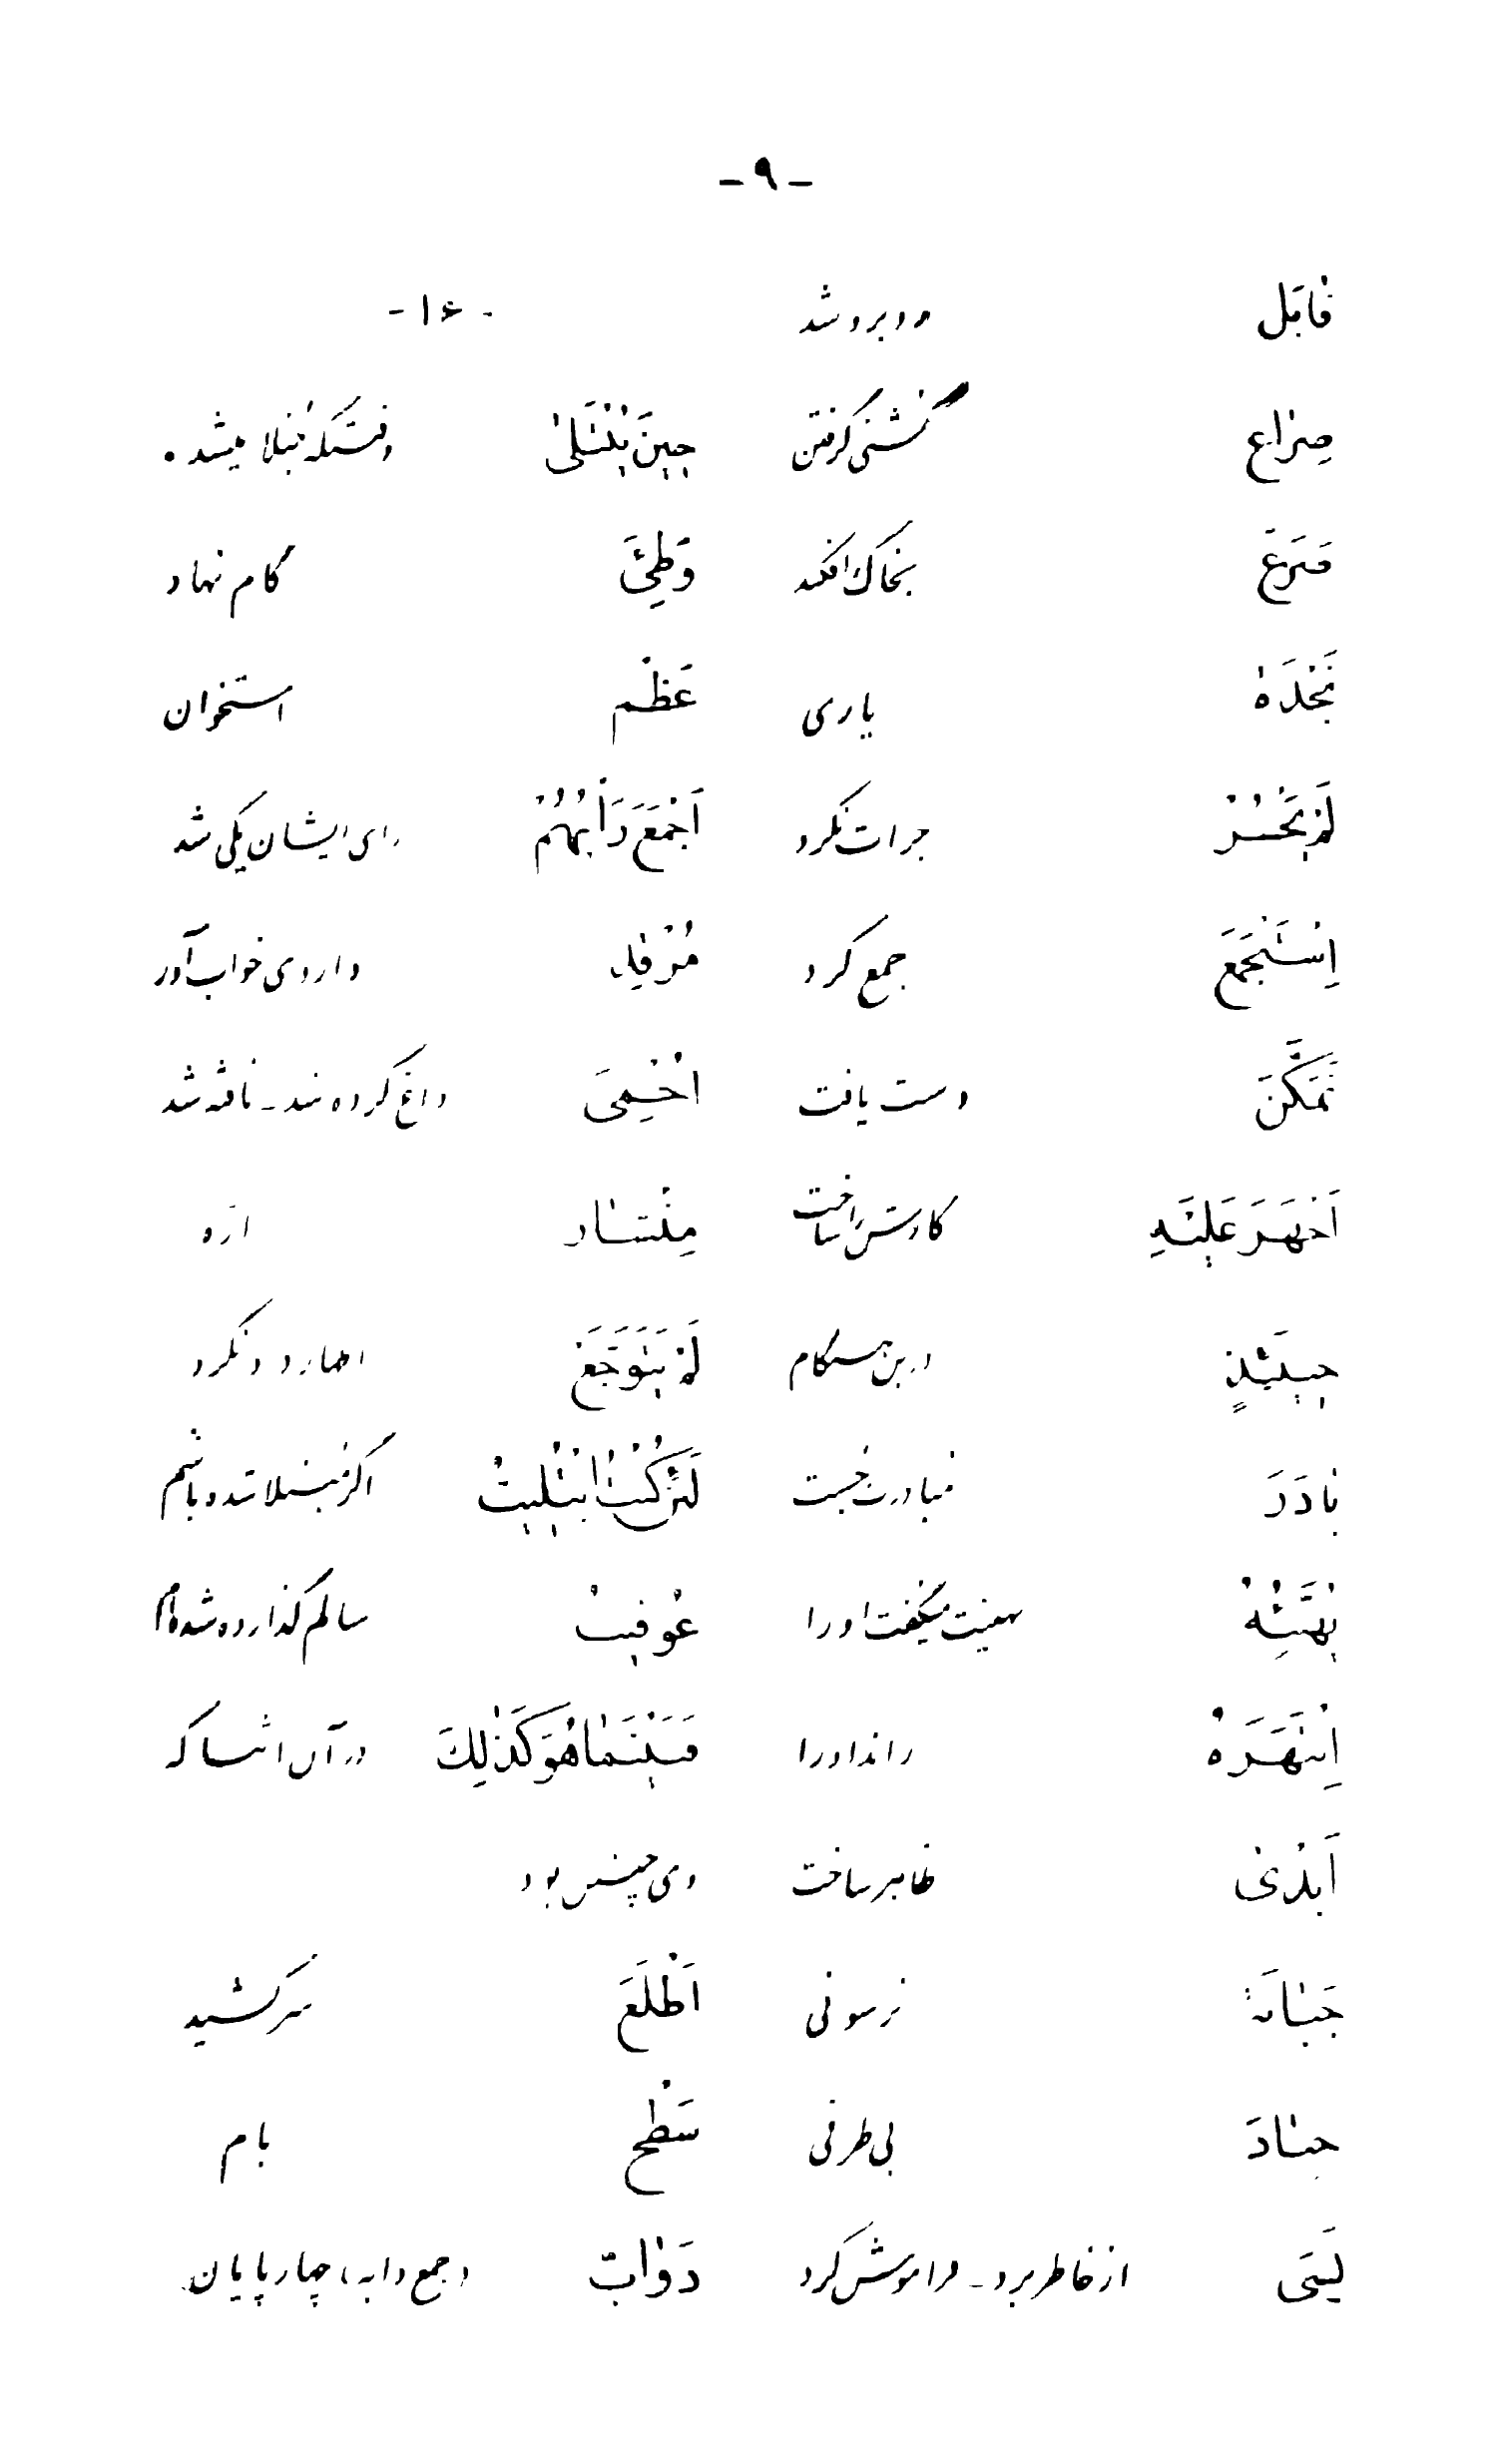 -٩-
قابَل روبرو شد -١٤-
صِراع کُشتی گرفتن حِینَ یُبْتَلیٰ وقتیکه مُبتلا میشد.
صَرَعَ بخاک افکند وَطِئَ گام نهاد
نَجْدَة یاری عَظْم استخوان
لَمْ یَجْسُرْ جرات نکرد اَجْمَعَ رَأْیُهُمْ رای ایشان یکی شد
اِسْتَجْمَعَ جمع کرد مُرْقِد داروی خواب آور
تَمَکَّنَ دست یافت اُحْمِیَ داغ کرده شد - تافته شد
اَجْهَزَ عَلَیْهِ کارش را ساخت مِنْشار ارّه
حِینَئِذٍ درین هنگام لَمْ یَتَوَجَّعْ اظهار درد نکرد
بادَرَ مبادرت جست لَئِنْ کُنْتُ ابْتُلِیتُ اگر مبتلا شده باشم
یُهَنِّئُهُ تهنیت میگفت او را عُوفِیتُ سالم گذارده شده‌ام
اِنْتَهَرَهُ راند او را فَبَیْنَما هُوَ کَذٰلِكَ در آن اثنا که
اَبْدیٰ ظاهر ساخت وی چنین بود
جَبانَة ترسوئی اَطْلَعَ سر کشید
حِیاد بی طرفی سَطْح بام
نَسِیَ از خاطر برد - فراموش کرد دَوابّ (جمع دابه) چهارپایان